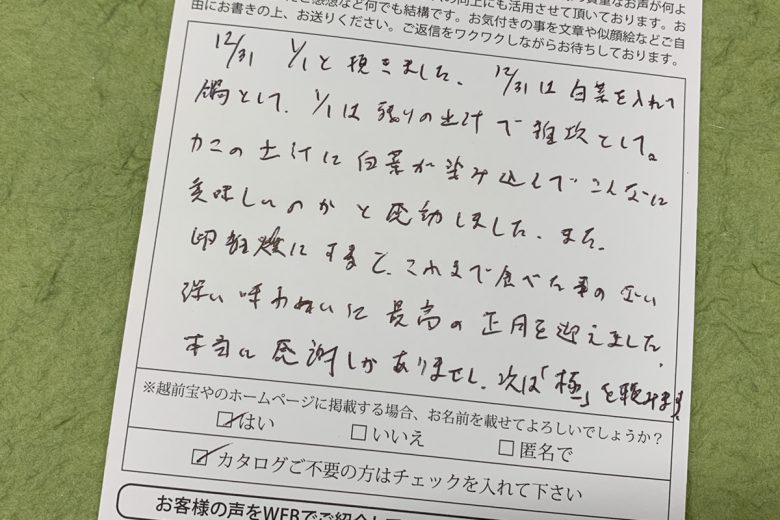 の向上にも活用させて頂いております。お
ご感想など何でも結構です。お気付きの事を文章や似顔絵などご自
由にお書きの上、お送りください。ご返信をワクワクしながらお待ちしております。
12/31 1/1と頂きました。12/31は白菜を入れて
鍋として、1/1は残りの出汁で雑炊として。
カニの出汁に白菜が染み込んでこんなに
美味しいのかと感動しました。また、
卵雑炊にすると、これまで食べた事の無い
深い味わいに最高の正月を迎えました。
本当に感謝しかありません。次は「極」を頼みます
※越前宝やのホームページに掲載する場合、お名前を載せてよろしいでしょうか?
はい いいえ 匿名で
カタログご不要の方はチェックを入れて下さい
お客様の声をWEBでご紹介して